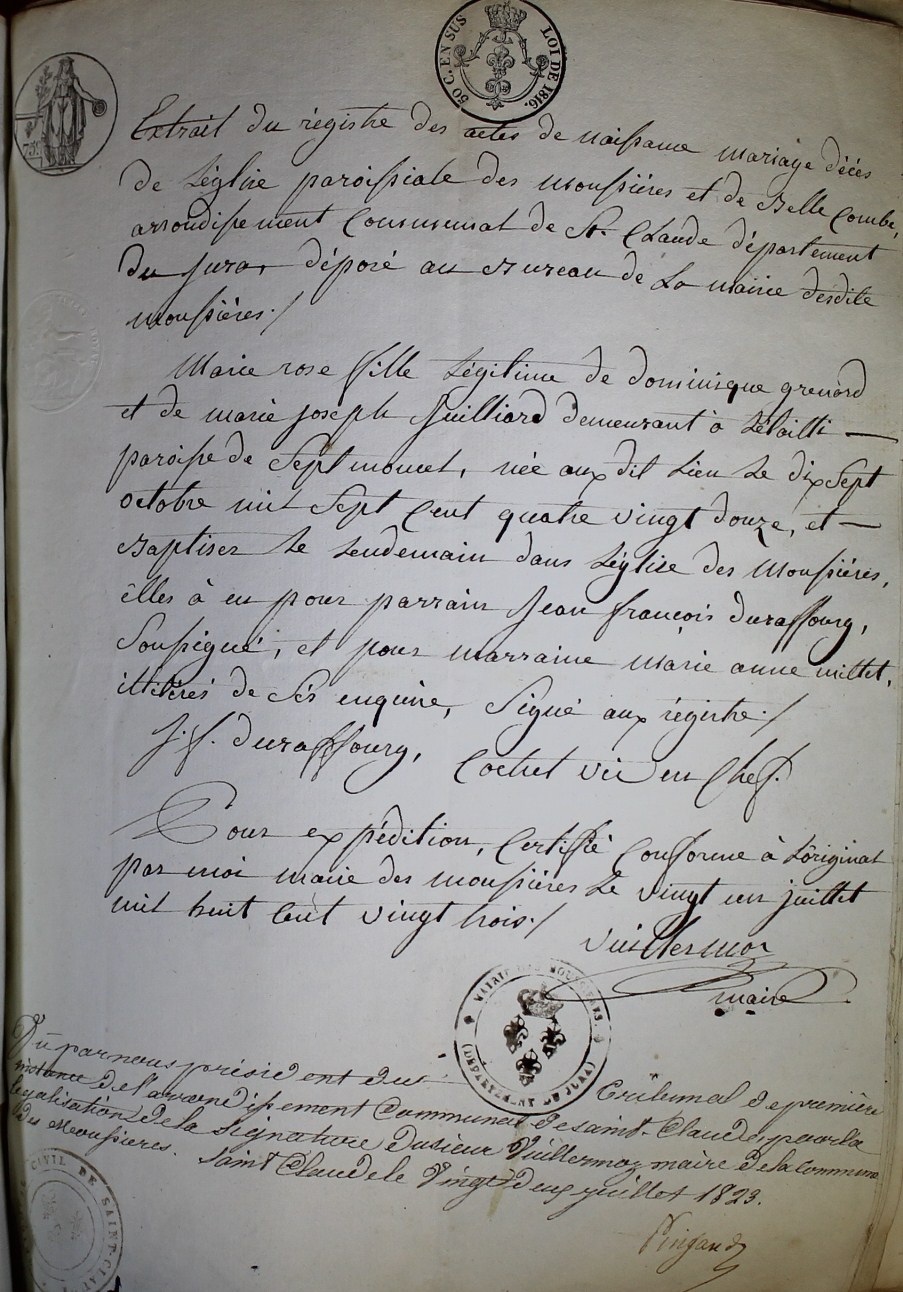 50 C. EN SUS LOI DE 1816.
Extrait du régistre des actes de naissance mariage décés
de Léglise paroissiale des moussiéres et de Bellecombe,
arrondissement Communal de St. Claude département
du jura, déposé au Bureau de La mairie desdite
moussiéres./
Marie rose fille Légitime de dominique grenard
et de marie joseph juilliard demeurant à
paroisse de Septmoncel, née aux dit Lieu Le dix Sept
octobre mil Sept Cent quatre vingt douze, et —
Baptisez Le Lendemain dans Léglise des Moussiéres,
elles à eu pour parrain Jean françois duraffourg,
Soussigné, et pour marraine marie anne millet,
illitéres de Sés enquise, Signé aux régistre./
j.f. duraffourg, Cochet vic en Chef.
Pour expédition, Certifié Conforme à Loriginal
par moi maire des moussiéres Le vingt un juillet
mil huit Cent vingt trois./
Vuillermoz
maire
MAIRIE DES MOUSSIERES.
(DÉPARTEMENT DU JURA)
Vu par nous président du Tribunal de première
instance de l'arrondissement Communal de saint-Claude, pour la
légalisation de la signature du sieur Vuillermoz maire de la commune
des Moussieres.
Saint Claude le Vingt deux juillet 1823.
CIVIL DE SAINT-CLAUDE